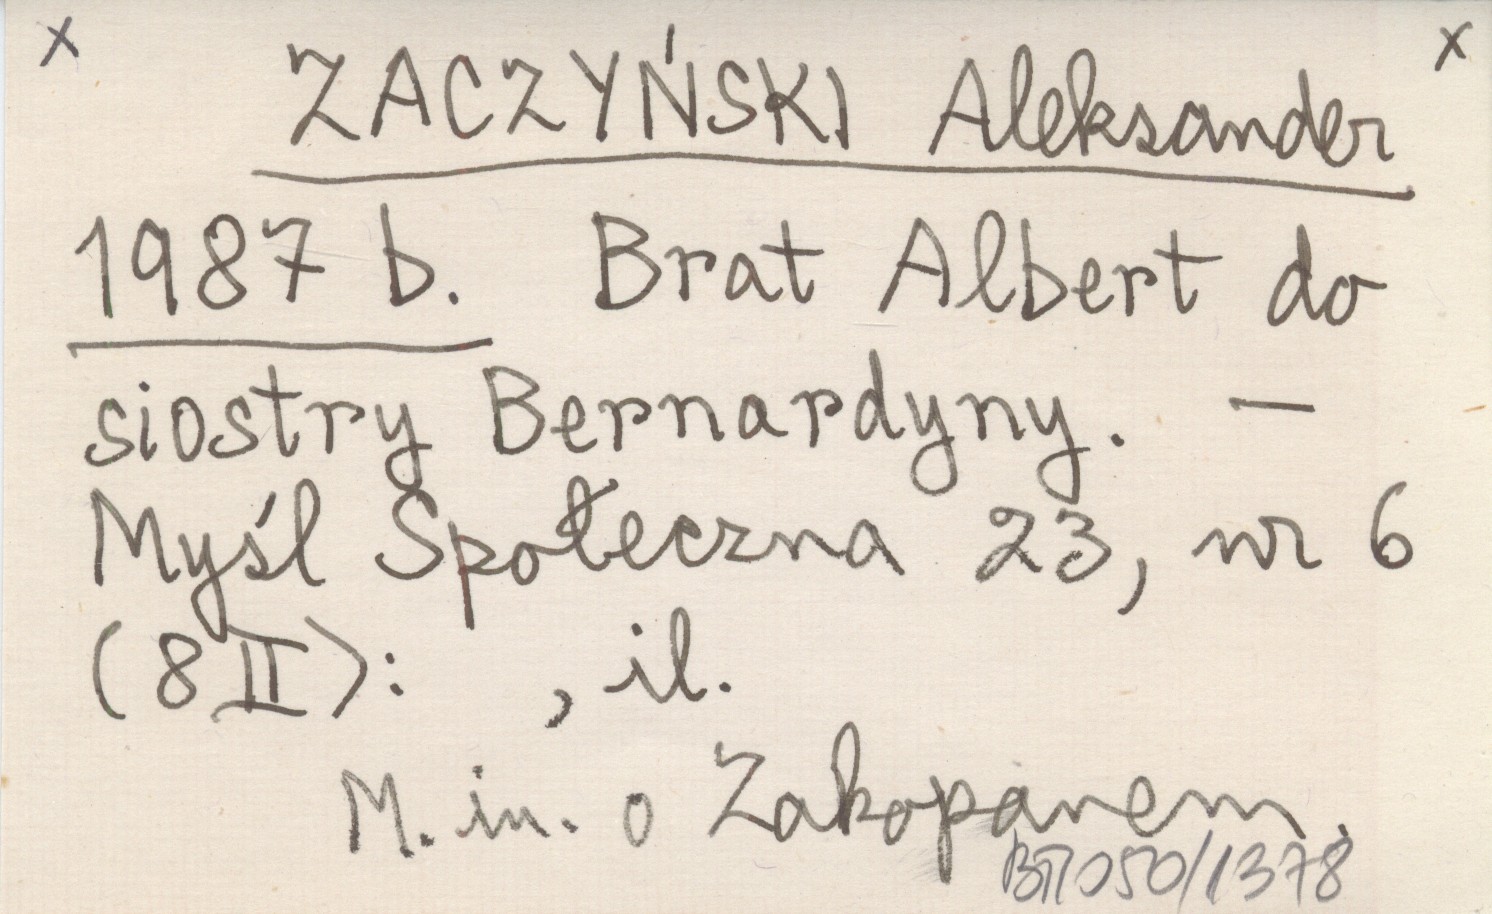 x x
ZACZYŃSKI Aleksander
1987 b. Brat Albert do
siostry Bernardyny. —
Myśl Społeczna 23, nr 6
(8 II): , il.
M. in. o Zakopanem.
050/1378